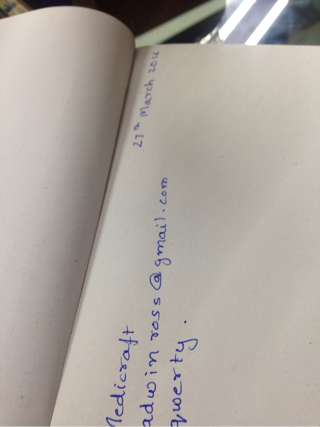 27th March 2016
Medicraft
adwin ross@gmail.com
qwerty.